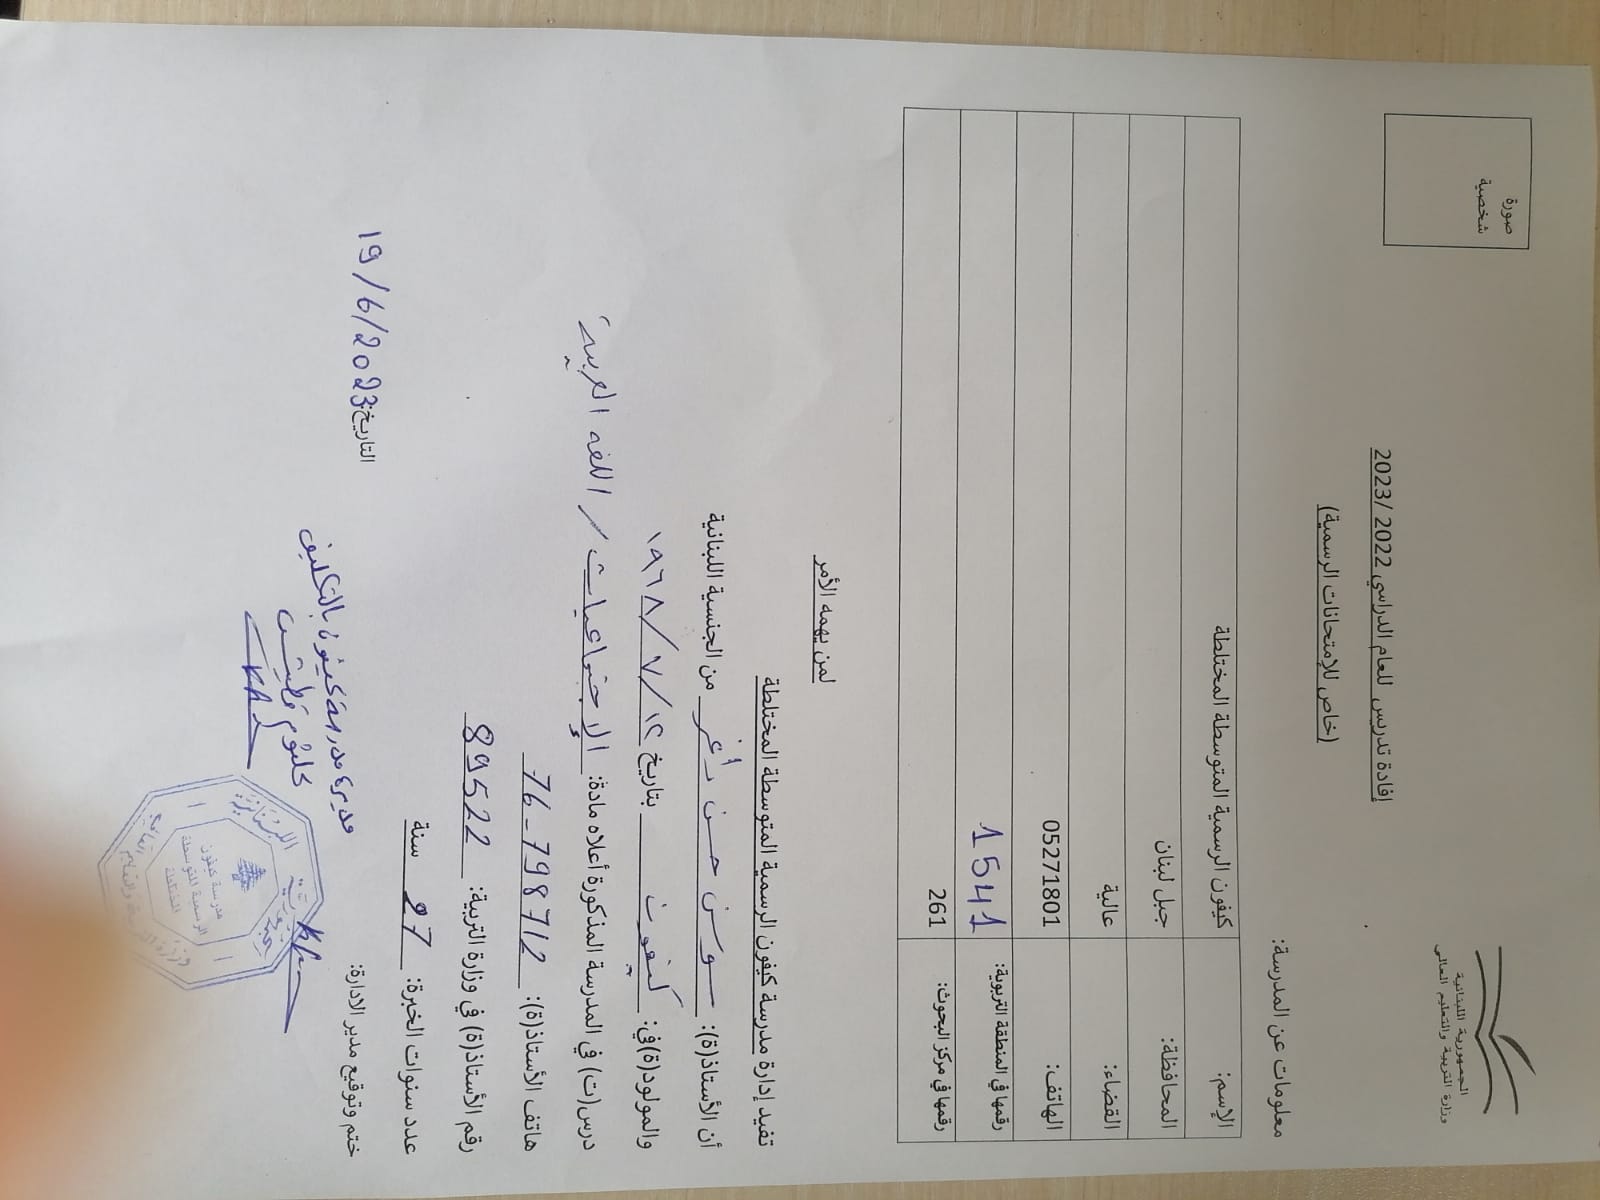 الجمهورية اللبنانية
وزارة التربية والتعليم العالي
صورة
شخصية
إفادة تدريس للعام الدراسي 2022 /2023
(خاص للإمتحانات الرسمية)
معلومات عن المدرسة:
الإسم: كيفون الرسمية المتوسطة المختلطة
المحافظة: جبل لبنان
القضاء: عالية
الهاتف: 05271801
رقمها في المنطقة التربوية: 1541
رقمها في مركز البحوث: 261
لمن يهمه الأمر
تفيد إدارة مدرسة كيفون الرسمية المتوسطة المختلطة
أن الأستاذ(ة): سوسن حسن من الجنسية اللبنانية
والمولود(ة)في: كيفون بتاريخ ١٩٦٨/٧/١٢
درس(ت) في المدرسة المذكورة أعلاه مادة: الإجتماعيات / اللغه العربية
هاتف الأستاذ(ة): 76-798712
رقم الأستاذ(ة) في وزارة التربية: 89522
عدد سنوات الخبرة: 27 سنة
ختم وتوقيع مدير الادارة: التاريخ: 19/6/2023
مديرة مدرسة كيفون بالتكليف
مدرسة كيفون
الرسمية المتوسطة
المختلطة